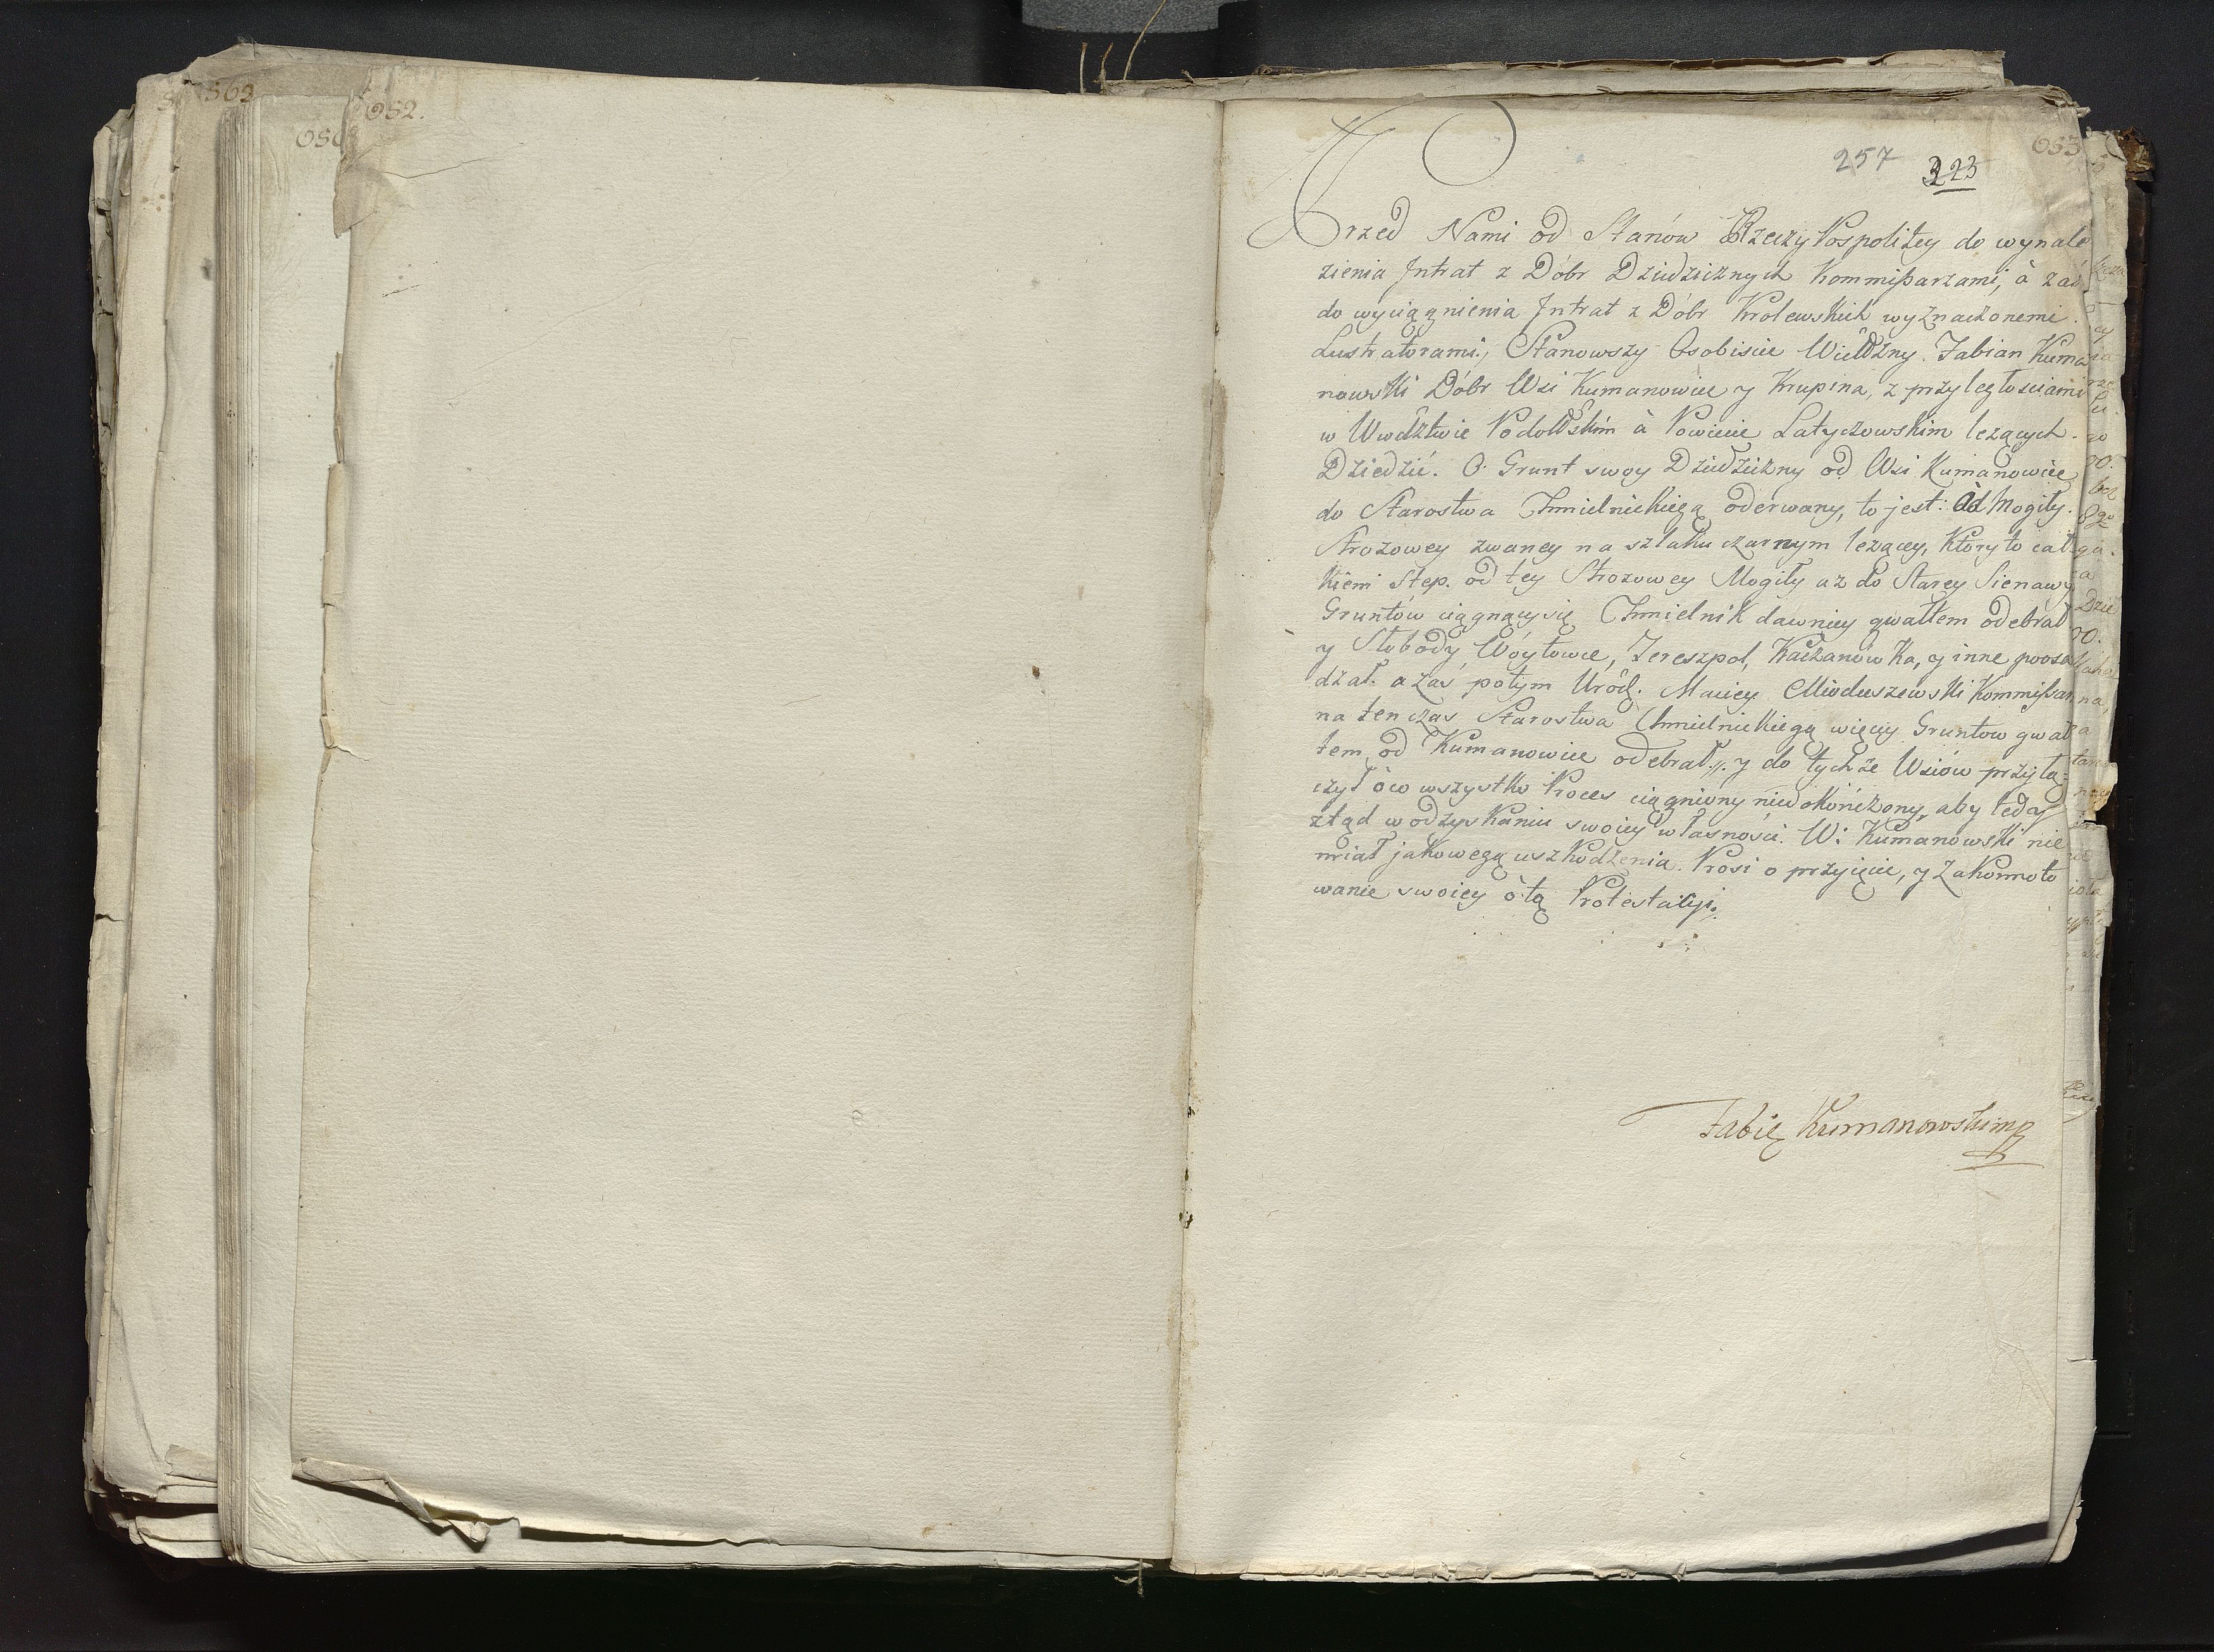 569
080
082.
257 323 083
Przed Nami od Stanów Rzeczy Pospolitey do wynale
zienia Jntrat z Dóbr Dziedzicznych Kommißarzami, à zaś
do wyciągnienia Jntrat z Dóbr Krolewskich wyznaczonemi
Lustratorami, Stanowszy Osobiscie Wielożny Fabian Kuma
nowski Dóbr Wsi Kumanowiec y Krupina, z przyległosciami
w Wwdztwie Podolskim à Powiecie Latyczowskim leżących
Dziedzic. O Grunt swoy Dziedziczny od Wsi Kumanowiec
do Starostwa Chmielnickiego oderwany, to jest: Od Mogiły
Strożowey zwaney na szlaku czarnym leżącey, Który to cał
kiem step. od tey Strozowey Mogiły aż do Starey Sienawy
Gruntów ciągnący się Chmielnik dawniey gwałtem odebrał
y Słobody Wóytowce, Tereszpol, Kaczanówka, y inne poosa
dzał. a zaś potym Uród. Maciey Mioduszewski Kommißar
na ten czas Starostwa Chmielnickiego więcey Gruntow gwał
tem od Kumanowiec odebrał. y do tychże Wsiów przyłą:
czył ò co wszystko Proces ciągniony niedokończony, aby tedy
ztąd w odzyskaniu swoiey własnosci. W: Kumanowski nie
miał jakowego uszkodzenia. Prosi o przyięcie, y Zakonnoto
wanie swoiey ò to Protestacyi.
Fabię Kumanowski mp